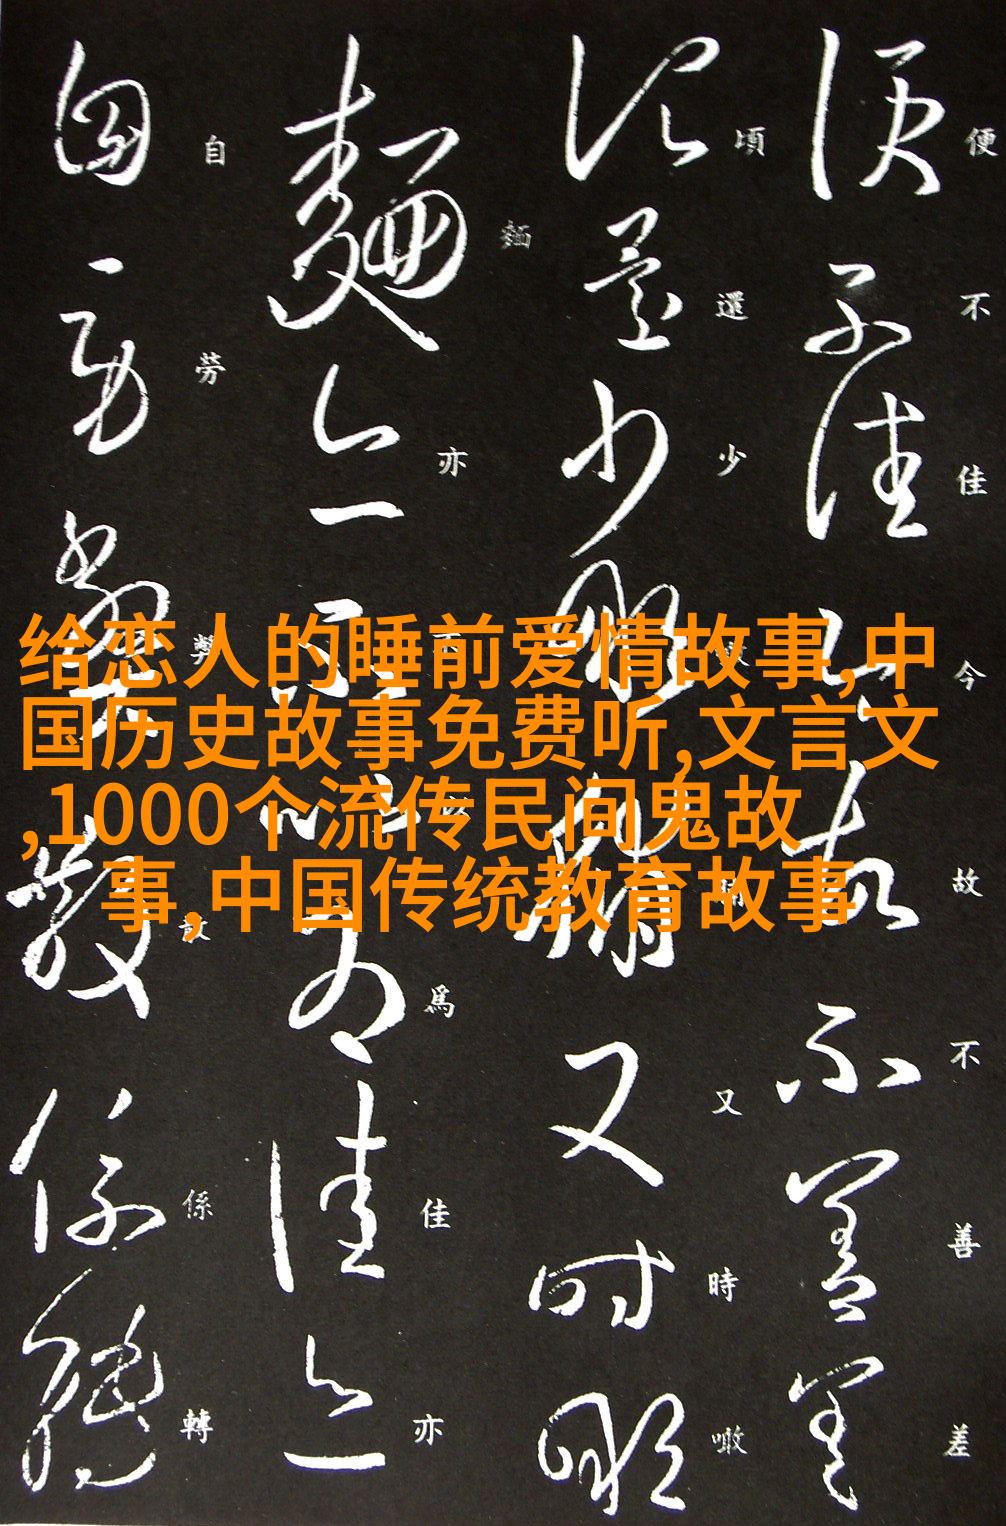 给恋人的睡前爱情故事,中
国历史故事免费听,文言文
,1000个流传民间鬼故
事,中国传统教育故事
便不佳今故不善差
頃還少噉脯又時噉
麵亦不以爲佳亦
自勞弊散係轉